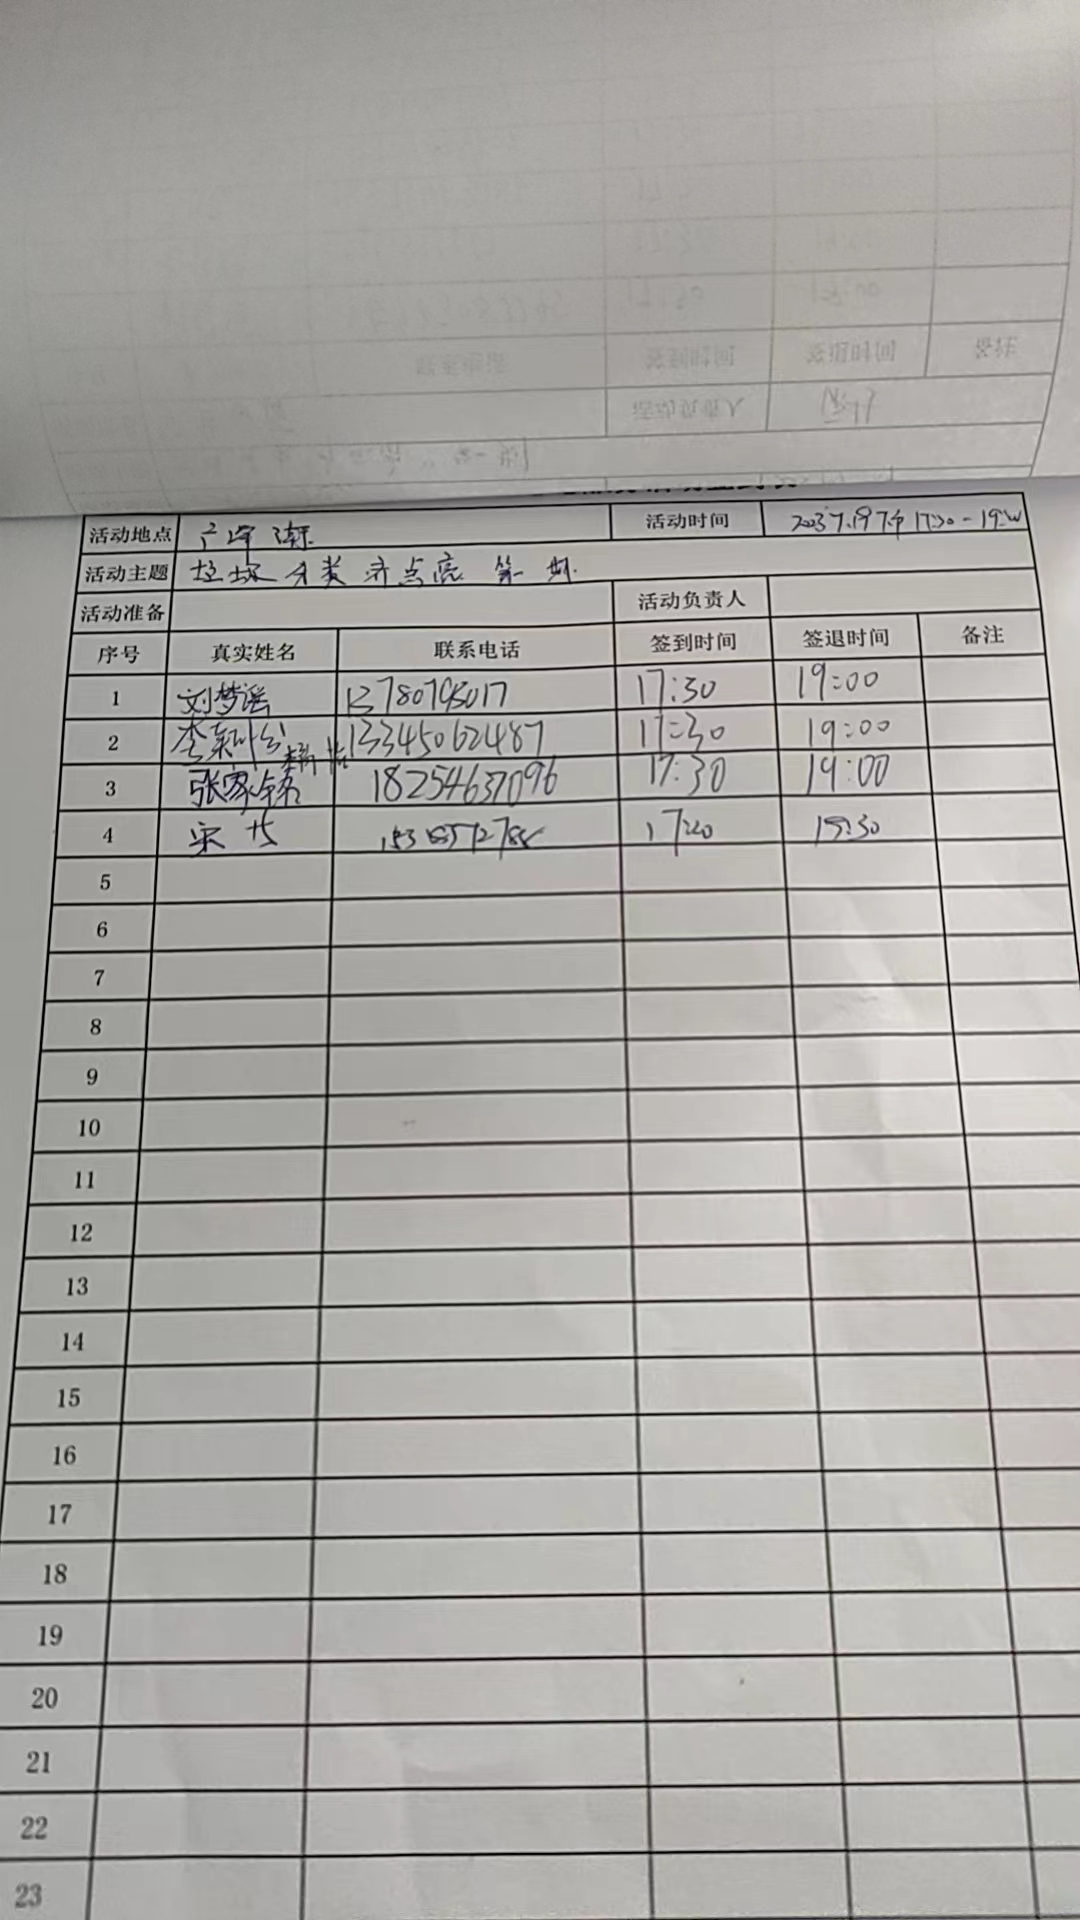 活动地点 活动时间 2023 7.19 下午 17:30-19:00
活动主题 垃圾分类 齐点亮 第 期
活动准备 活动负责人
序号 真实姓名 联系电话 签到时间 签退时间 备注
1 刘梦瑶 13780795017 17:30 19:00
2 13345062487 17:30 19:00
3 张家铭 18254637096 17:30 19:00
4 宋 17:20 19:30
5
6
7
8
9
10
11
12
13
14
15
16
17
18
19
20
21
22
23